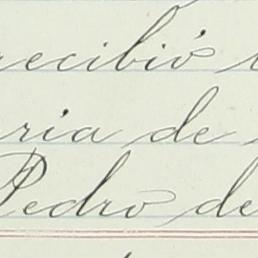 recibió
ria de
Pedro de